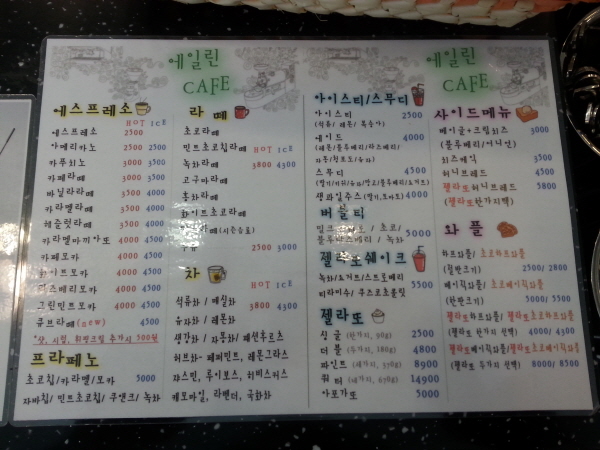 에일린
CAFE
에스프레소
HOT ICE
에스프레소 2500
아메리카노 2500 3000
카푸치노 3000 4000
카페라떼 3000 4000
바닐라라떼 3500 4000
카라멜라떼 3500 4000
헤즐럿라떼 3500 4000
카라멜마끼아또 4000 4500
카페모카 4000 4500
화이트모카 4000 4500
라즈베리모카 4000 4500
그린민트모카 4000 4500
큐브라떼(new) 4500
*샷, 시럽, 휘핑크림 추가시 500원
프라페노
초코칩/카라멜/모카 5000
자바칩/민트초코칩/쿠앤크/녹화
라떼
HOT ICE
초코라떼
민트초코칩라떼
녹화라떼 3800 4300
고구마라떼
홍차라떼
화이트초코라떼
(시즌음료)
우유 2500 3000
차
HOT ICE
석류화 / 매실화 3800 4300
유자화 / 레몬화
생강화 / 자몽화 / 패션후르츠
허브화- 페퍼민트, 레몬그라스
쟈스민, 루이보스, 히비스커스
캐모마일, 라벤더, 국화화
아이스티/스무디
아이스티 2500
(석류 / 레몬 / 복숭아)
에이드 4000
(레몬/블루베리/라즈베리/
자몽/청포도/유자)
스무디 4500
(딸기/키위/유자/망고/블루베리/요거트)
생과일주스(딸기,토마토) 4000
버블티
밀크 / 초코/ 5000
블루베리 / 녹화
젤라또쉐이크
녹화/요거트/스트로베리 5500
티라미수/쿠즈포초콜릿
젤라또
싱글 (한가지, 90g) 2500
더블 (두가지, 180g) 4800
파인트 (세가지, 370g) 8900
쿼터 (네가지, 670g) 14900
아포가또 5000
에일린
CAFE
사이드메뉴
베이글+크림치즈 3000
(블루베리/어니언)
치즈케익 3500
허니브레드 4500
젤라또허니브레드 5800
(젤라또한가지택)
와플
하프와플/초코하프와플
(절반크기) 2500/ 2800
베이직와플/초코베이직와플
(한판크기) 5000/ 5500
젤라또하프와플/젤라또초코하프와플
(젤라또 한가지 선택) 4000/ 4300
젤라또베이직와플/젤라또초코베이직와플
(젤라또 두가지 선택) 8000/ 8500